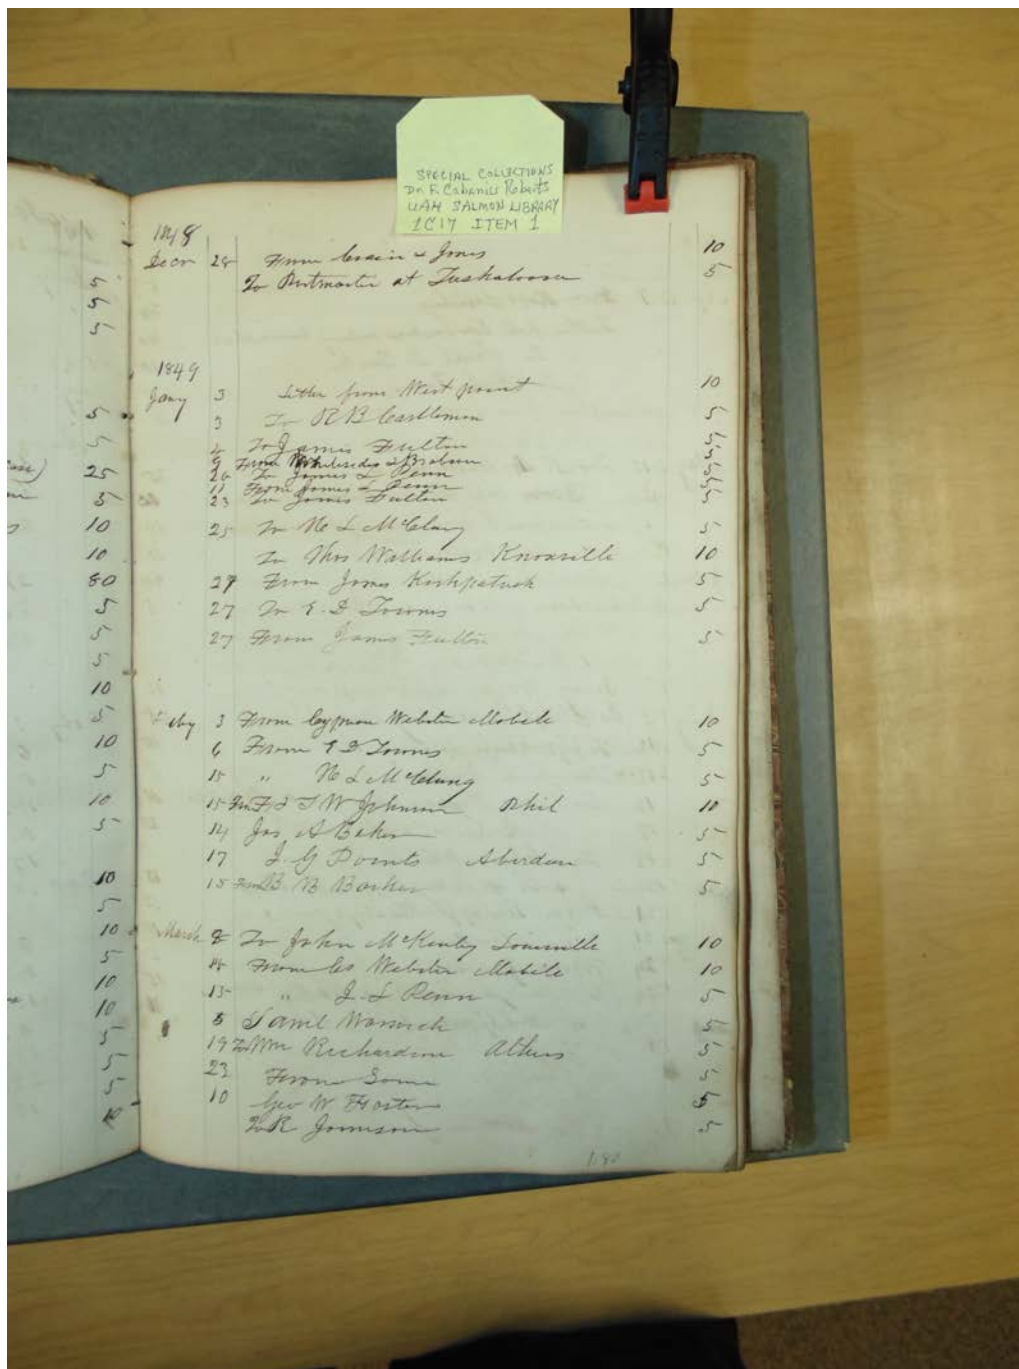 SPECIAL COLLECTIONS
Dr. F. Cabaniss Roberts
UAH SALMON LIBRARY
1C17 ITEM 1
1848
Decr 28 From Crain & Jones 10
To Postmaster at Tuskaloosa 5
1849
Jany 3 Letter from West point 10
3 To R B Castleman 5
To James Fulton 5
9 From Whitesides & 5
20 To James L Penn 5
11 From James L Penn 5
23 To James Fulton 5
25 To McClung 5
To Thos Williams Knoxville 10
27 From James Kirkpatrick 5
27 To E. D Townes 5
27 From James Fulton 5
Feby 3 From Webster Mobile 10
6 From E D Townes 5
15 " McClung 5
15 Fm T W Johnson Phil 10
14 Jas A Baker 5
17 J. G Points Aberdeen 5
15 From B B Barker 5
March 8 To John McKinley Louisville 10
From Webster Mobile 10
13 " J. L Penn 5
5 Saml Warwick 5
19 To Wm Richardson Athens 5
23 From Same 5
10 Geo W Foster 5
To R Jamison 5
1.80
5
5
5
5
5
25
5
10
10
80
5
5
5
10
5
10
5
10
5
10
5
10
5
10
10
5
5
5
10